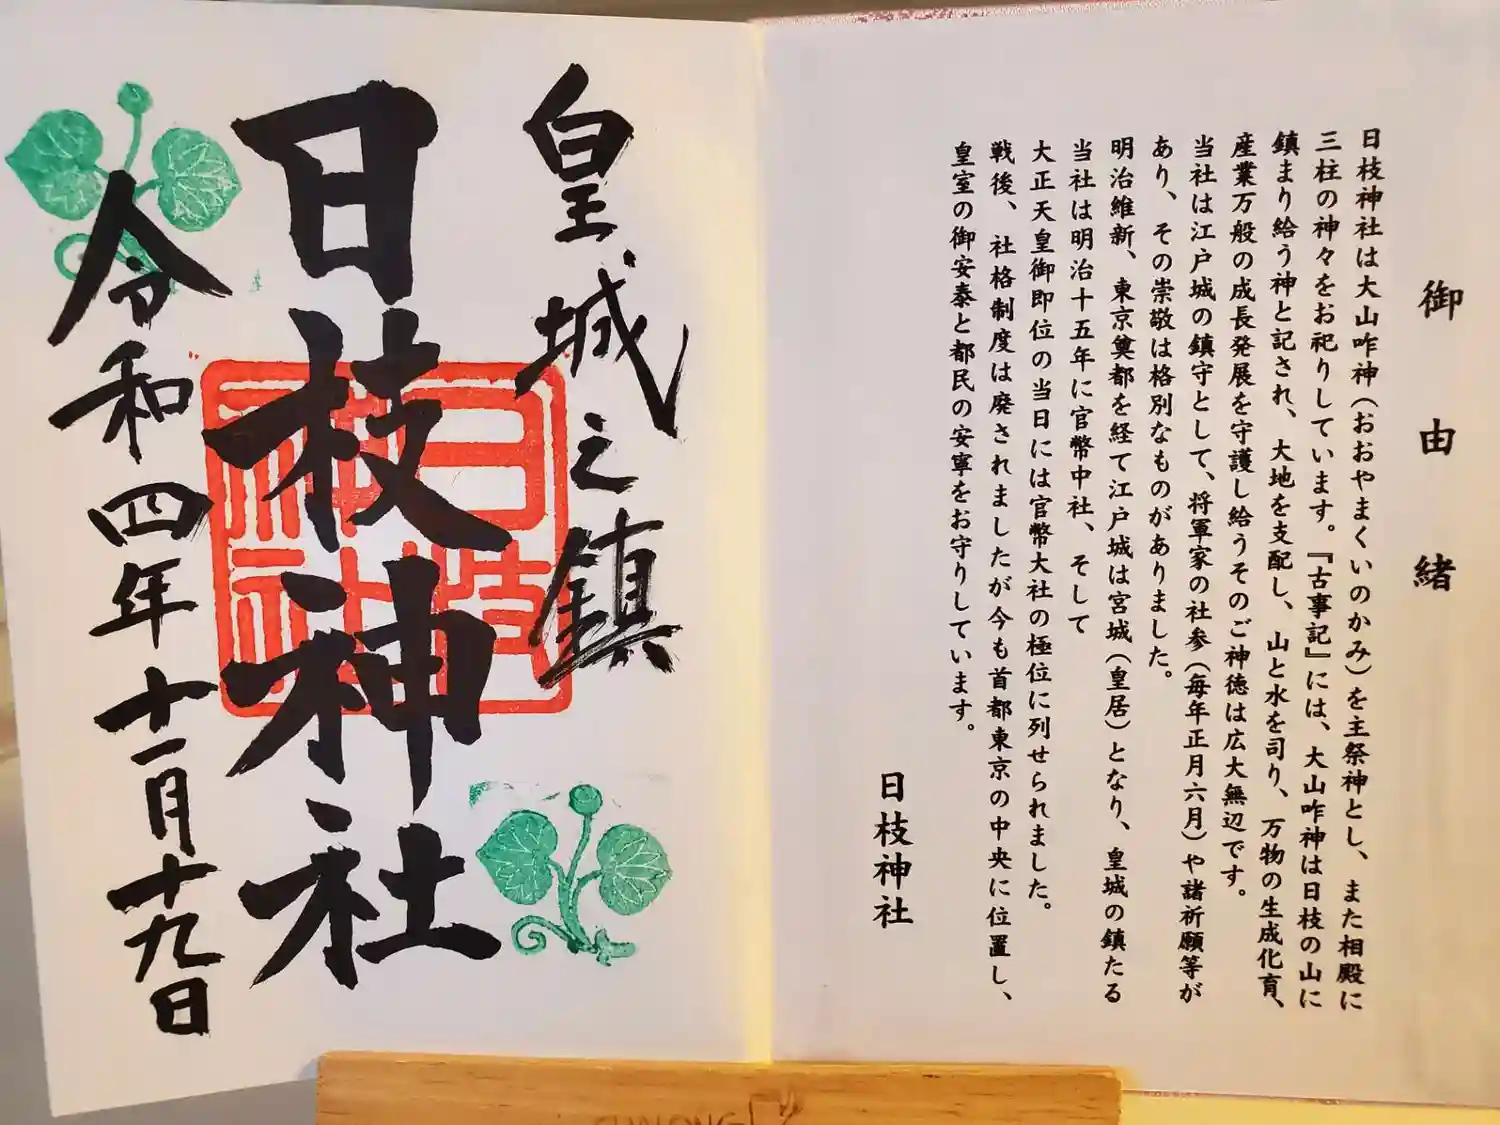 御由緒
日枝神社は大山咋神（おおやまくいのかみ）を主祭神とし、また相殿に
三柱の神々をお祀りしています。『古事記』には、大山咋神は日枝の山に
鎮まり給う神と記され、大地を支配し、山と水を司り、万物の生成化育、
産業万般の成長発展を守護し給うそのご神徳は広大無辺です。
当社は江戸城の鎮守として、将軍家の社参（毎年正月六月）や諸祈願等が
あり、その崇敬は格別なものがありました。
明治維新、東京奠都を経て江戸城は宮城（皇居）となり、皇城の鎮たる
当社は明治十五年に官幣中社、そして
大正天皇御即位の当日には官幣大社の極位に列せられました。
戦後、社格制度は廃されましたが今も首都東京の中央に位置し、
皇室の御安泰と都民の安寧をお守りしています。
日枝神社
皇城之鎮
日枝神社
日枝
神社
令和四年十一月十九日